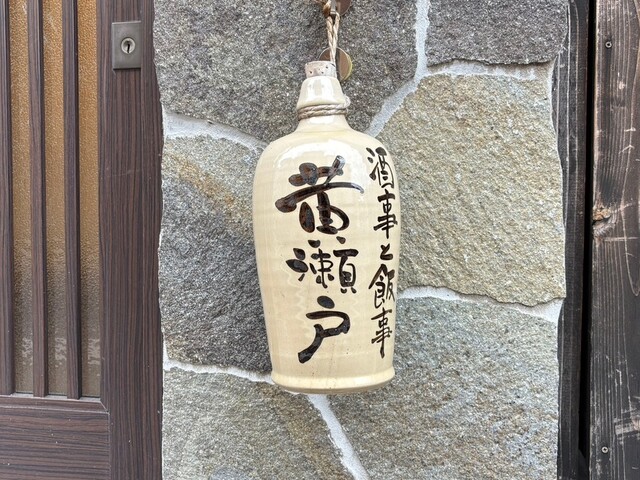 酒事と飯事
黄瀬戸